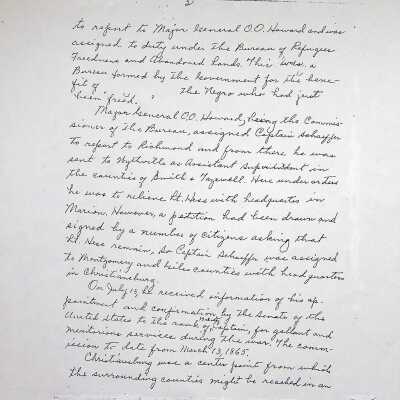 2
to report to Major General O.O. Howard and was
assigned to duty under The Bureau of Refugees
Freedmen and Abandoned Lands. This was a
Bureau formed by the Government for the bene-
fit of The Negro who had just
"been freed."
Major General O.O. Howard, being the Commis-
sioner of The Bureau, assigned Captain Schaeffer
to report to Richmond and from there he was
sent to Wytheville as Assistant Superintendent in
the counties of Smith & Tazewell. Here under orders
he was to relieve Lt. Hess with headquarters in
Marion. However, a petition had been drawn and
signed by a number of citizens asking that
Lt. Hess remain, so Captain Schaeffer was assigned
to Montgomery and Giles counties with headquarters
in Christiansburg.
On July 13, he received information of his ap-
pointment and confirmation by the Senate of the
United States to the rank of Captain, for gallant and
meritorious services during the war. The comm-
ission to date from March 13, 1865.
Christiansburg was a center point from which
the surrounding counties might be reached in an